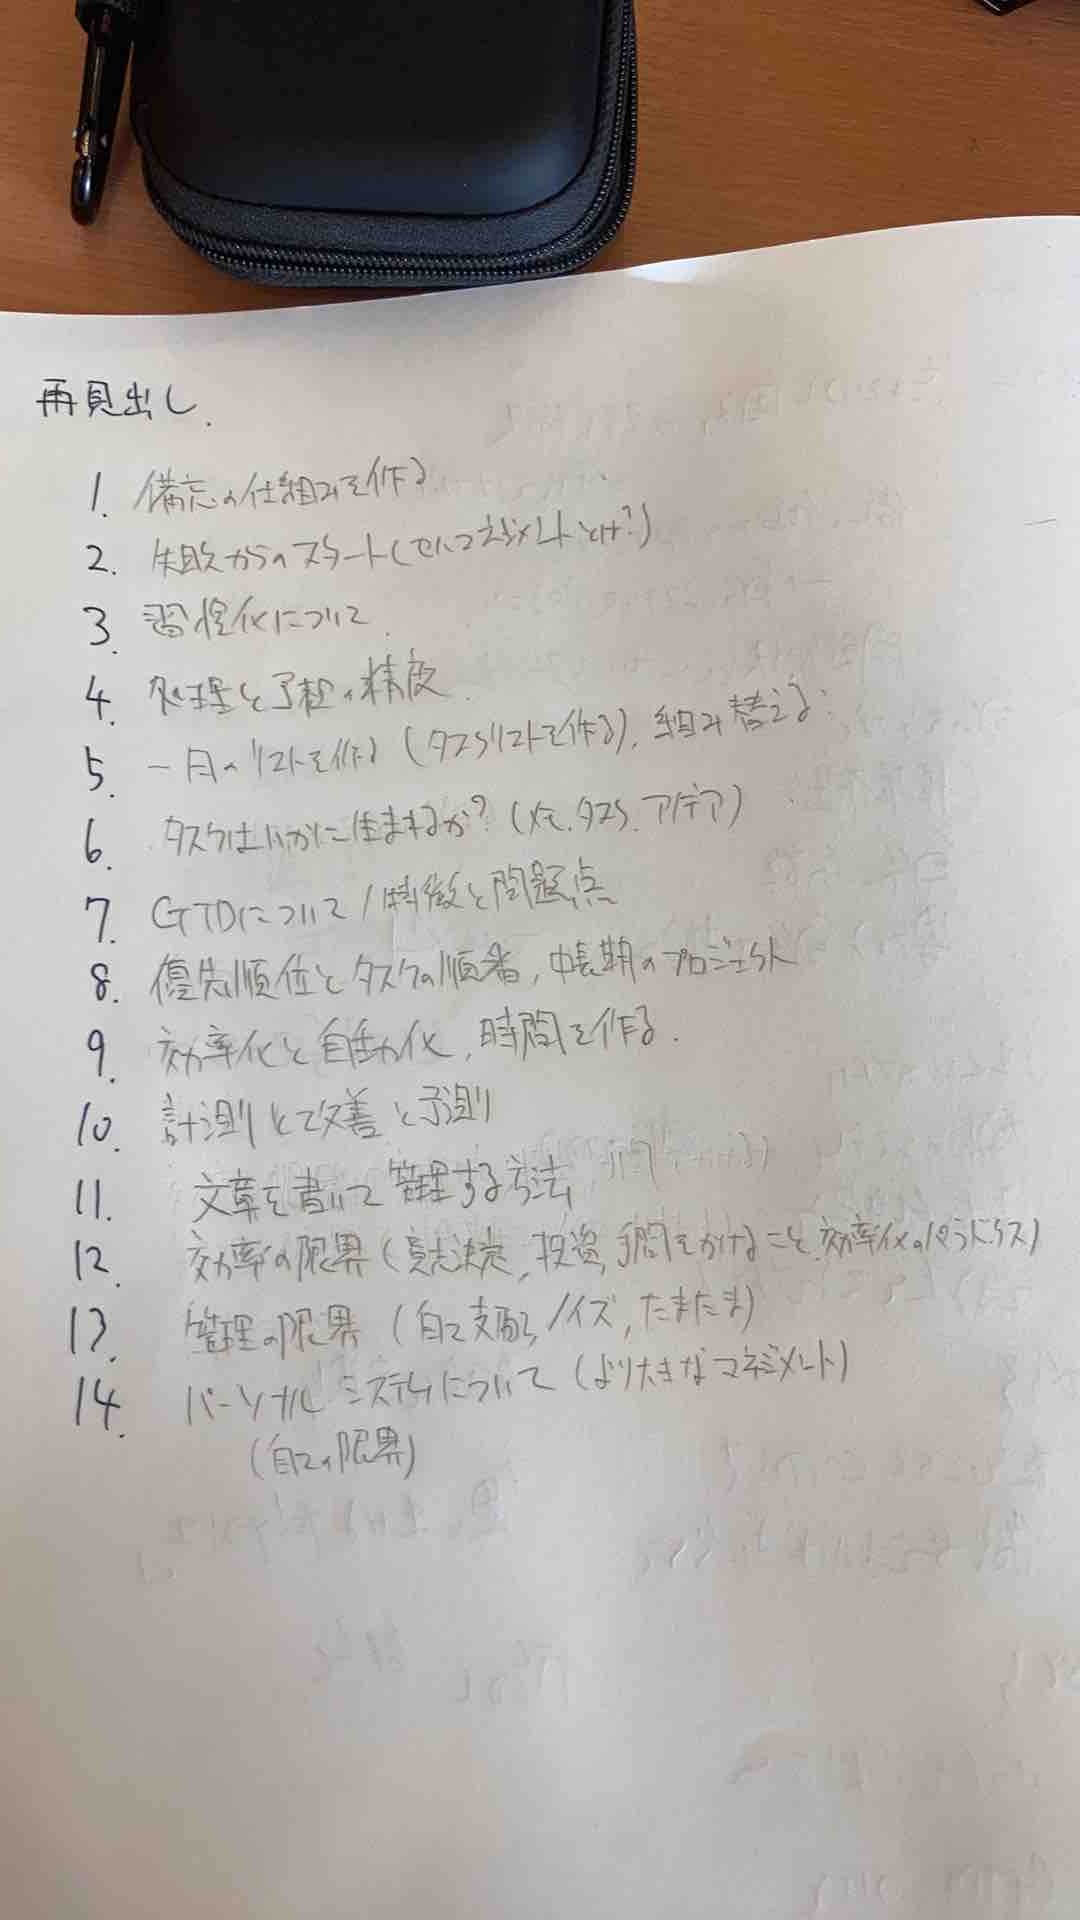 再見出し.
1. 備忘の仕組みを作る
2. 失敗からのスタート(セルフマネジメントとは?)
3. 習慣化について
4. 処理と予想の精度
5. 一日のリストを作る(タスクリストを作る), 組み替える
6. タスクはいかに生まれるか?(メモ, タスク, アイデア)
7. GTDについて/特徴と問題点
8. 優先順位とタスクの順番, 中長期のプロジェクト
9. 効率化と自動化, 時間を作る.
10. 計測と改善と予測
11. 文章を書いて管理する方法
12. 効率の限界(意志決定, 投資, 手間をかけること, 効率化のパラドクス)
13. 管理の限界(自己支配, ノイズ, たまたま)
14. パーソナルシステムについて(より大きなマネジメント)
(自己の限界)